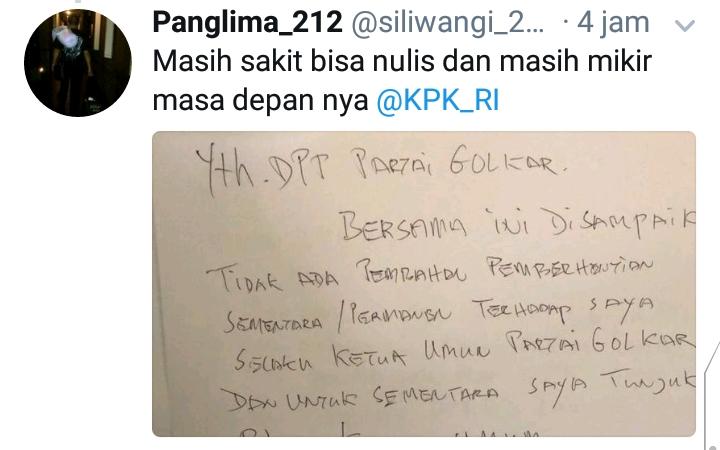 Panglima_212 @siliwangi_2... · 4 jam
Masih sakit bisa nulis dan masih mikir
masa depan nya @KPK_RI
Yth. DPT PARTAI GOLKAR.
BERSAMA INI DISAMPAIK
TIDAK ADA PEMBERHENTIAN
SEMENTARA / PERMANEN TERHADAP SAYA
SELAKU KETUA UMUM PARTAI GOLKAR
DAN UNTUK SEMENTARA SAYA TUNJUK